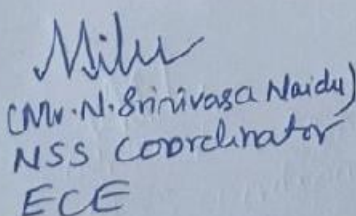 (Mr. N. Srinivasa Naidu)
NSS Coordinator
ECE